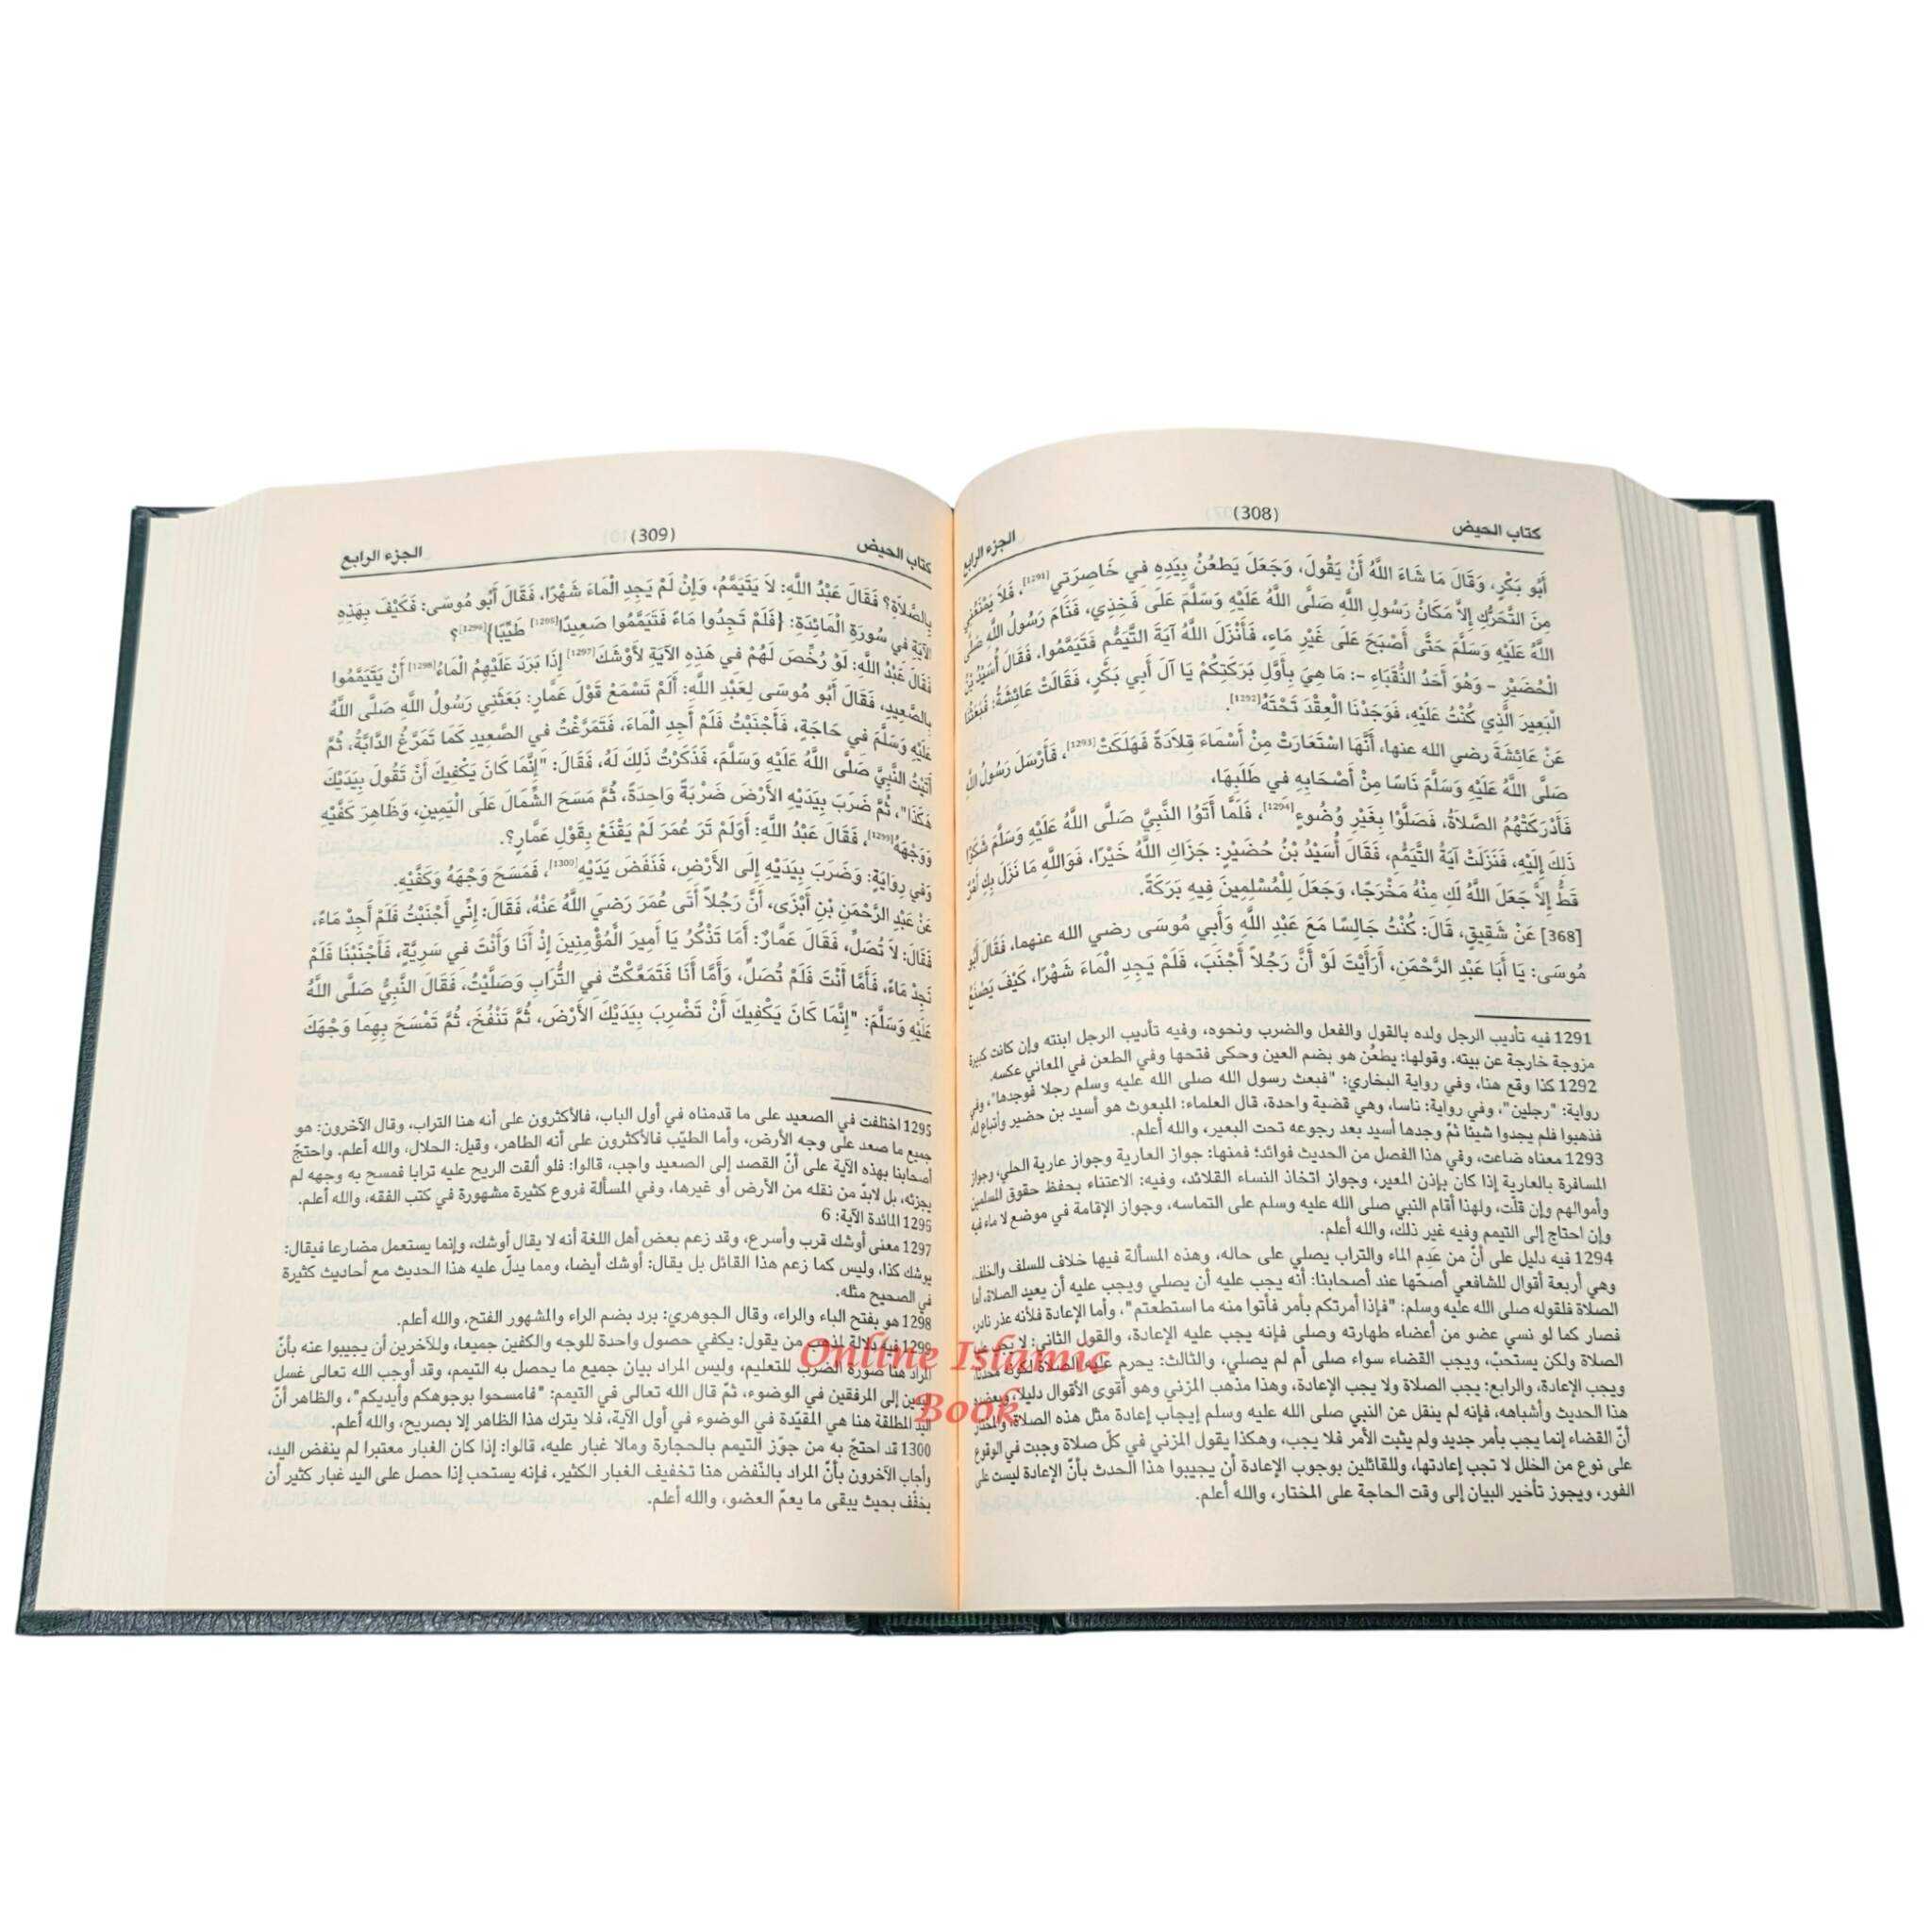 كتاب الحيض (308) الجزء الرابع
أَبُو بَكْرٍ، وَقَالَ مَا شَاءَ اللَّهُ أَنْ يَقُولَ، وَجَعَلَ يَطْعُنُ بِيَدِهِ فِي خَاصِرَتِي[1291]، فَلَا يَمْنَعُنِي
مِنَ التَّحَرُّكِ إِلاَّ مَكَانُ رَسُولِ اللَّهِ صَلَّى اللَّهُ عَلَيْهِ وَسَلَّمَ عَلَى فَخِذِي، فَنَامَ رَسُولُ اللَّهِ صَلَّى
اللَّهُ عَلَيْهِ وَسَلَّمَ حَتَّى أَصْبَحَ عَلَى غَيْرِ مَاءٍ، فَأَنْزَلَ اللَّهُ آيَةَ التَّيَمُّمِ فَتَيَمَّمُوا، فَقَالَ أُسَيْدُ بْنُ
الْحُضَيْرِ – وَهُوَ أَحَدُ النُّقَبَاءِ –: مَا هِيَ بِأَوَّلِ بَرَكَتِكُمْ يَا آلَ أَبِي بَكْرٍ، فَقَالَتْ عَائِشَةُ: فَبَعَثْنَا
الْبَعِيرَ الَّذِي كُنْتُ عَلَيْهِ، فَوَجَدْنَا الْعِقْدَ تَحْتَهُ[1292].
عَنْ عَائِشَةَ رضي الله عنها، أَنَّهَا اسْتَعَارَتْ مِنْ أَسْمَاءَ قِلَادَةً فَهَلَكَتْ[1293]، فَأَرْسَلَ رَسُولُ اللَّهِ
صَلَّى اللَّهُ عَلَيْهِ وَسَلَّمَ نَاسًا مِنْ أَصْحَابِهِ فِي طَلَبِهَا،
فَأَدْرَكَتْهُمُ الصَّلَاةُ، فَصَلَّوْا بِغَيْرِ وُضُوءٍ[1294]، فَلَمَّا أَتَوُا النَّبِيَّ صَلَّى اللَّهُ عَلَيْهِ وَسَلَّمَ شَكَوْا
ذَلِكَ إِلَيْهِ، فَنَزَلَتْ آيَةُ التَّيَمُّمِ، فَقَالَ أُسَيْدُ بْنُ حُضَيْرٍ: جَزَاكِ اللَّهُ خَيْرًا، فَوَاللَّهِ مَا نَزَلَ بِكِ أَمْرٌ
قَطُّ إِلاَّ جَعَلَ اللَّهُ لَكِ مِنْهُ مَخْرَجًا، وَجَعَلَ لِلْمُسْلِمِينَ فِيهِ بَرَكَةً.
[368] عَنْ شَقِيقٍ، قَالَ: كُنْتُ جَالِسًا مَعَ عَبْدِ اللَّهِ وَأَبِي مُوسَى رضي الله عنهما، فَقَالَ أَبُو
مُوسَى: يَا أَبَا عَبْدِ الرَّحْمَنِ، أَرَأَيْتَ لَوْ أَنَّ رَجُلاً أَجْنَبَ، فَلَمْ يَجِدِ الْمَاءَ شَهْرًا، كَيْفَ يَصْنَعُ
1291 فيه تأديب الرجل ولده بالقول والفعل والضرب ونحوه، وفيه تأديب الرجل ابنته وإن كانت كبيرة
مزوجة خارجة عن بيته. وقولها: يطعُن هو بضم العين وحكى فتحها وفي الطعن في المعاني عكسه.
1292 كذا وقع هنا، وفي رواية البخاري: "فبعث رسول الله صلى الله عليه وسلم رجلا فوجدها"، وفي
رواية: "رجلين"، وفي رواية: ناسا، وهي قضية واحدة، قال العلماء: المبعوث هو أسيد بن حضير وأتباع له
فذهبوا فلم يجدوا شيئا ثمّ وجدها أسيد بعد رجوعه تحت البعير، والله أعلم.
1293 معناه ضاعت، وفي هذا الفصل من الحديث فوائد؛ فمنها: جواز العارية وجواز عارية الحلي، وجواز
المسافرة بالعارية إذا كان بإذن المعير، وجواز اتخاذ النساء القلائد، وفيه: الاعتناء بحفظ حقوق المسلمين
وأموالهم وإن قلّت، ولهذا أقام النبي صلى الله عليه وسلم على التماسه، وجواز الإقامة في موضع لا ماء فيه
وإن احتاج إلى التيمم وفيه غير ذلك، والله أعلم.
1294 فيه دليل على أنّ من عَدِم الماء والتراب يصلي على حاله، وهذه المسألة فيها خلاف للسلف والخلف،
وهي أربعة أقوال للشافعي أصحّها عند أصحابنا: أنه يجب عليه أن يصلي ويجب عليه أن يعيد الصلاة، أما
الصلاة فلقوله صلى الله عليه وسلم: "فإذا أمرتكم بأمر فأتوا منه ما استطعتم"، وأما الإعادة فلأنه عذر نادر،
فصار كما لو نسي عضو من أعضاء طهارته وصلى فإنه يجب عليه الإعادة، والقول الثاني: لا يجب عليه
الصلاة ولكن يستحبّ، ويجب القضاء سواء صلى أم لم يصلي، والثالث: يحرم عليه الصلاة لكونه محدثا،
ويجب الإعادة، والرابع: يجب الصلاة ولا يجب الإعادة، وهذا مذهب المزني وهو أقوى الأقوال دليلا، ويعضده
هذا الحديث وأشباهه، فإنه لم ينقل عن النبي صلى الله عليه وسلم إيجاب إعادة مثل هذه الصلاة، والمختار
أنّ القضاء إنما يجب بأمر جديد ولم يثبت الأمر فلا يجب، وهكذا يقول المزني في كلّ صلاة وجبت في الوقوع
على نوع من الخلل لا تجب إعادتها، وللقائلين بوجوب الإعادة أن يجيبوا هذا الحدث بأنّ الإعادة ليست على
الفور، ويجوز تأخير البيان إلى وقت الحاجة على المختار، والله أعلم.
كتاب الحيض (309) الجزء الرابع
بِالصَّلَاةِ؟ فَقَالَ عَبْدُ اللَّهِ: لاَ يَتَيَمَّمُ، وَإِنْ لَمْ يَجِدِ الْمَاءَ شَهْرًا، فَقَالَ أَبُو مُوسَى: فَكَيْفَ بِهَذِهِ
الآيَةِ فِي سُورَةِ الْمَائِدَةِ: {فَلَمْ تَجِدُوا مَاءً فَتَيَمَّمُوا صَعِيدًا[1295] طَيِّبًا}[1296]؟
فَقَالَ عَبْدُ اللَّهِ: لَوْ رُخِّصَ لَهُمْ فِي هَذِهِ الآيَةِ لأَوْشَكَ[1297] إِذَا بَرَدَ عَلَيْهِمُ الْمَاءُ[1298] أَنْ يَتَيَمَّمُوا
بِالصَّعِيدِ، فَقَالَ أَبُو مُوسَى لِعَبْدِ اللَّهِ: أَلَمْ تَسْمَعْ قَوْلَ عَمَّارٍ: بَعَثَنِي رَسُولُ اللَّهِ صَلَّى اللَّهُ
عَلَيْهِ وَسَلَّمَ فِي حَاجَةٍ، فَأَجْنَبْتُ فَلَمْ أَجِدِ الْمَاءَ، فَتَمَرَّغْتُ فِي الصَّعِيدِ كَمَا تَمَرَّغُ الدَّابَّةُ، ثُمَّ
أَتَيْتُ النَّبِيَّ صَلَّى اللَّهُ عَلَيْهِ وَسَلَّمَ، فَذَكَرْتُ ذَلِكَ لَهُ، فَقَالَ: "إِنَّمَا كَانَ يَكْفِيكَ أَنْ تَقُولَ بِيَدَيْكَ
هَكَذَا"، ثُمَّ ضَرَبَ بِيَدَيْهِ الأَرْضَ ضَرْبَةً وَاحِدَةً، ثُمَّ مَسَحَ الشِّمَالَ عَلَى الْيَمِينِ، وَظَاهِرَ كَفَّيْهِ
وَوَجْهَهُ[1299]، فَقَالَ عَبْدُ اللَّهِ: أَوَلَمْ تَرَ عُمَرَ لَمْ يَقْنَعْ بِقَوْلِ عَمَّارٍ؟.
وَفِي رِوَايَةٍ: وَضَرَبَ بِيَدَيْهِ إِلَى الأَرْضِ، فَنَفَضَ يَدَيْهِ[1300]، فَمَسَحَ وَجْهَهُ وَكَفَّيْهِ.
عَنْ عَبْدِ الرَّحْمَنِ بْنِ أَبْزَى، أَنَّ رَجُلاً أَتَى عُمَرَ رَضِيَ اللَّهُ عَنْهُ، فَقَالَ: إِنِّي أَجْنَبْتُ فَلَمْ أَجِدْ مَاءً،
فَقَالَ: لاَ تُصَلِّ، فَقَالَ عَمَّارٌ: أَمَا تَذْكُرُ يَا أَمِيرَ الْمُؤْمِنِينَ إِذْ أَنَا وَأَنْتَ فِي سَرِيَّةٍ، فَأَجْنَبْنَا فَلَمْ
نَجِدْ مَاءً، فَأَمَّا أَنْتَ فَلَمْ تُصَلِّ، وَأَمَّا أَنَا فَتَمَعَّكْتُ فِي التُّرَابِ وَصَلَّيْتُ، فَقَالَ النَّبِيُّ صَلَّى اللَّهُ
عَلَيْهِ وَسَلَّمَ: "إِنَّمَا كَانَ يَكْفِيكَ أَنْ تَضْرِبَ بِيَدَيْكَ الأَرْضَ، ثُمَّ تَنْفُخَ، ثُمَّ تَمْسَحَ بِهِمَا وَجْهَكَ
1295 اختلفت في الصعيد على ما قدمناه في أول الباب، فالأكثرون على أنه هنا التراب، وقال الآخرون: هو
جميع ما صعد على وجه الأرض، وأما الطيّب فالأكثرون على أنه الطاهر، وقيل: الحلال، والله أعلم. واحتجّ
أصحابنا بهذه الآية على أنّ القصد إلى الصعيد واجب، قالوا: فلو ألقت الريح عليه ترابا فمسح به وجهه لم
يجزئه، بل لابدّ من نقله من الأرض أو غيرها، وفي المسألة فروع كثيرة مشهورة في كتب الفقه، والله أعلم.
1296 المائدة الآية: 6
1297 معنى أوشك قرب وأسرع، وقد زعم بعض أهل اللغة أنه لا يقال أوشك، وإنما يستعمل مضارعا فيقال:
يوشك كذا، وليس كما زعم هذا القائل بل يقال: أوشك أيضا، ومما يدلّ عليه هذا الحديث مع أحاديث كثيرة
في الصحيح مثله.
1298 هو بفتح الباء والراء، وقال الجوهري: برد بضم الراء والمشهور الفتح، والله أعلم.
1299 فيه دلالة لمذهب من يقول: يكفي حصول واحدة للوجه والكفين جميعا، وللآخرين أن يجيبوا عنه بأنّ
المراد هنا صورة الضرب للتعليم، وليس المراد بيان جميع ما يحصل به التيمم، وقد أوجب الله تعالى غسل
اليدين إلى المرفقين في الوضوء، ثمّ قال الله تعالى في التيمم: "فامسحوا بوجوهكم وأيديكم"، والظاهر أنّ
اليد المطلقة هنا هي المقيّدة في الوضوء في أول الآية، فلا يترك هذا الظاهر إلا بصريح، والله أعلم.
1300 قد احتجّ به من جوّز التيمم بالحجارة ومالا غبار عليه، قالوا: إذا كان الغبار معتبرا لم ينفض اليد،
وأجاب الآخرون بأنّ المراد بالنّفض هنا تخفيف الغبار الكثير، فإنه يستحب إذا حصل على اليد غبار كثير أن
يخفّف بحيث يبقى ما يعمّ العضو، والله أعلم.
Online Islamic
Book